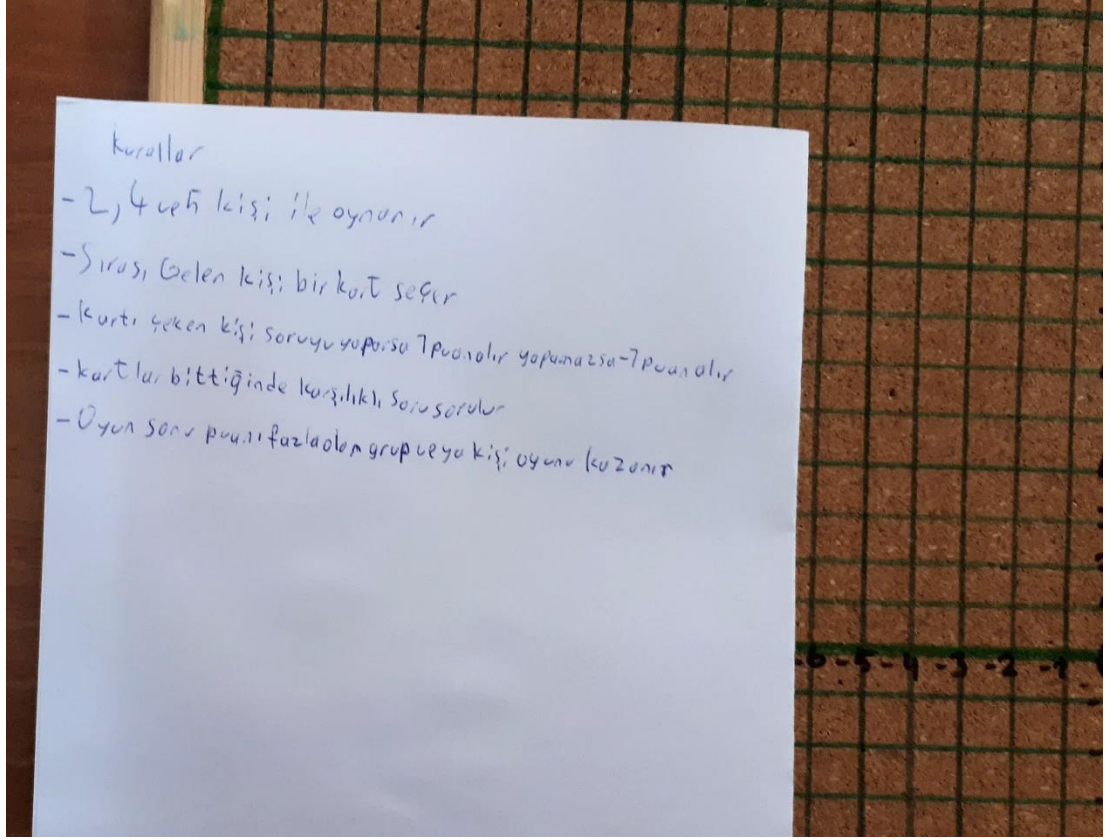 Kurallar
- 2, 4 ve 6 kişi ile oynanır
- Sırası Gelen kişi bir kart seçer
- Kartı çeken kişi soruyu yaparsa 1 puan alır yapamazsa -1 puan alır
- kartlar bittiğinde karşılıklı soru sorulur
- Oyun sonu puanı fazla olan grup veya kişi oyunu kazanır
-6 -5 -4 -3 -2 -1